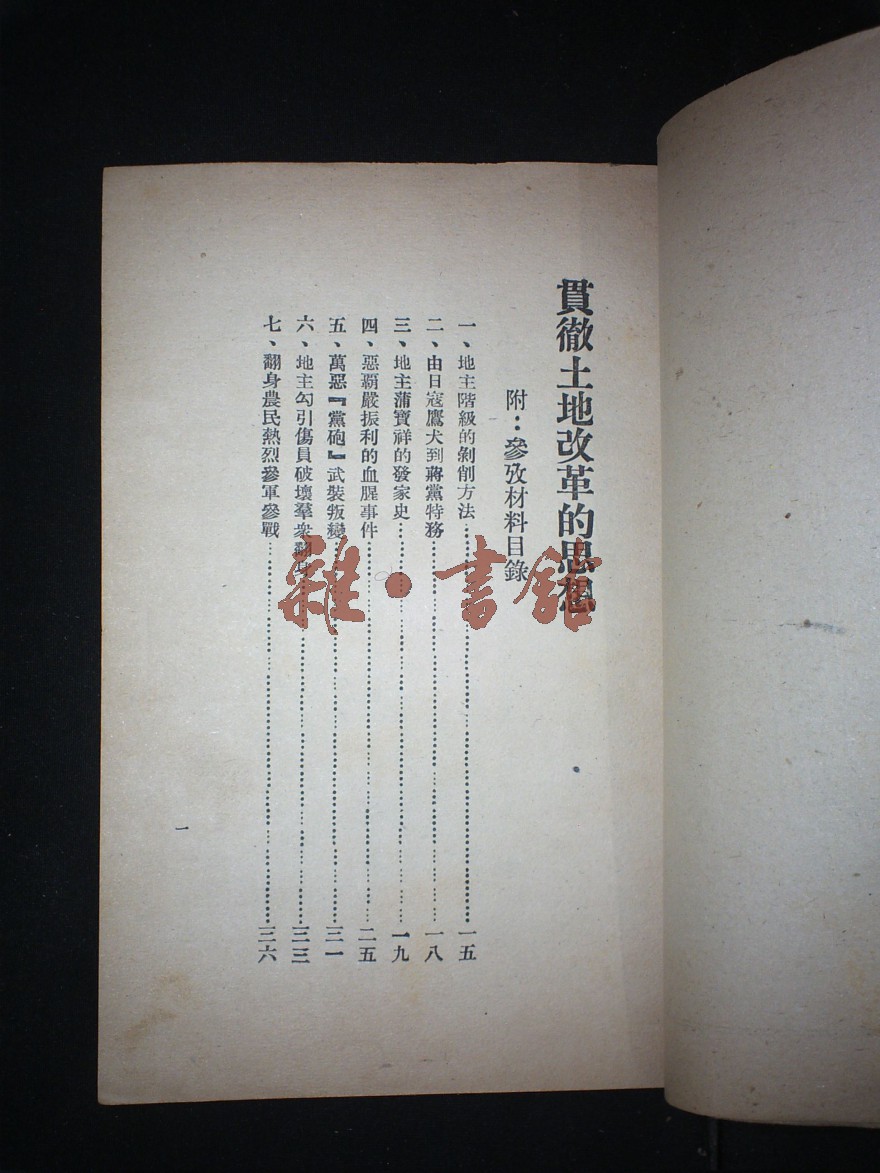 貫徹土地改革的思想
附：參攷材料目錄
一、地主階級的剝削方法……一五
二、由日寇鷹犬到蔣黨特務……一八
三、地主蒲寶祥的發家史……一九
四、惡霸嚴振利的血腥事件……二五
五、萬惡『黨砲』武裝叛變……三一
六、地主勾引傷員破壞羣衆翻身……三三
七、翻身農民熱烈參軍參戰……三六
一
雜·書館